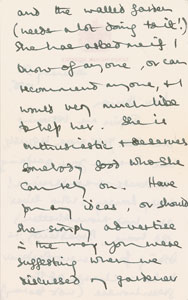 and the walled garden
(needs a lot doing to it!)
She has asked me if I
know of anyone, or can
recommend anyone, & I
would very much like
to help her. She is
enthusiastic & deserves
somebody good who she
can rely on. Have
you any ideas, or should
she simply advertise
in the way you were
suggesting when we
discussed my gardener